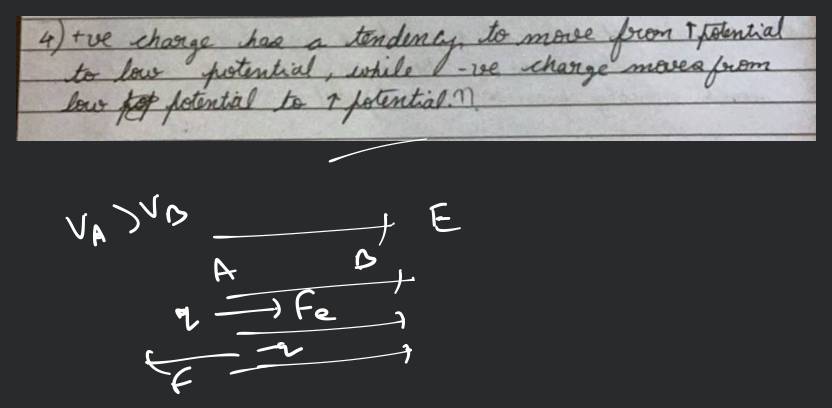 4) +ve charge has a tendency to move from ↑ potential
to low potential, while -ve charge moves from
low potential to ↑ potential.
V_A > V_B
E
A B
q F_e
-q
F